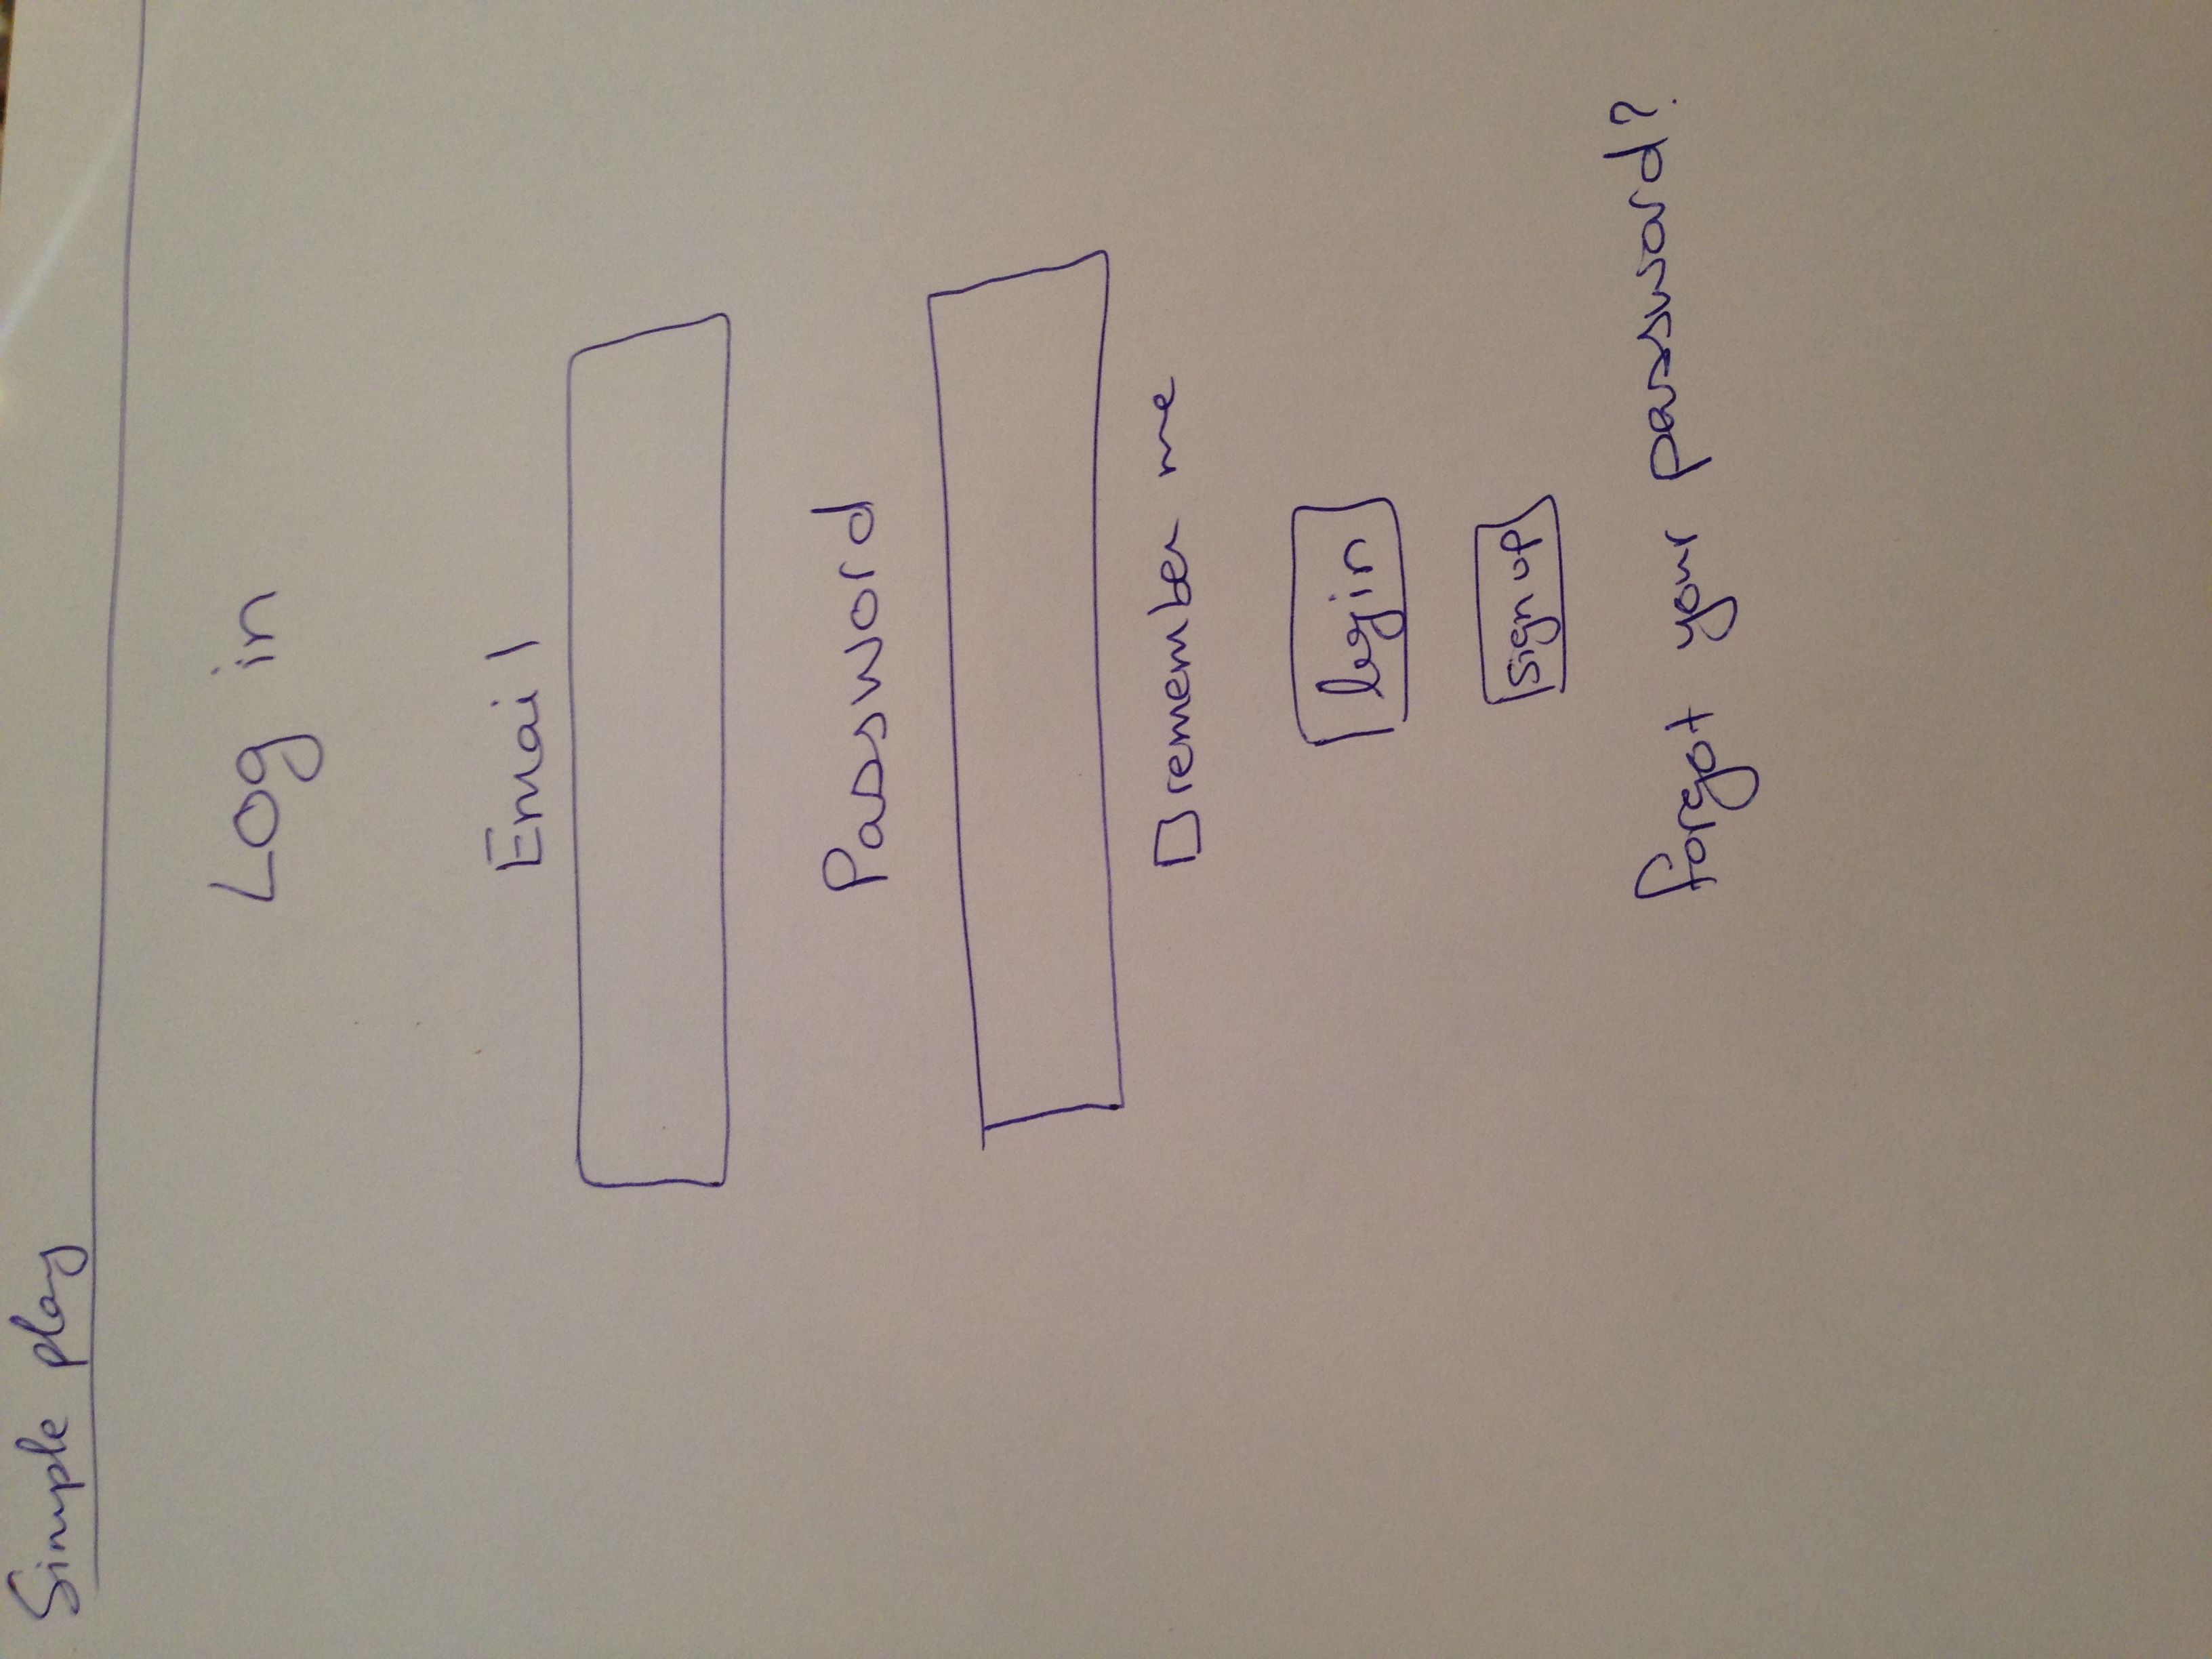 Simple play
Log in
Email
Password
remember me
login
sign up
forgot your password?